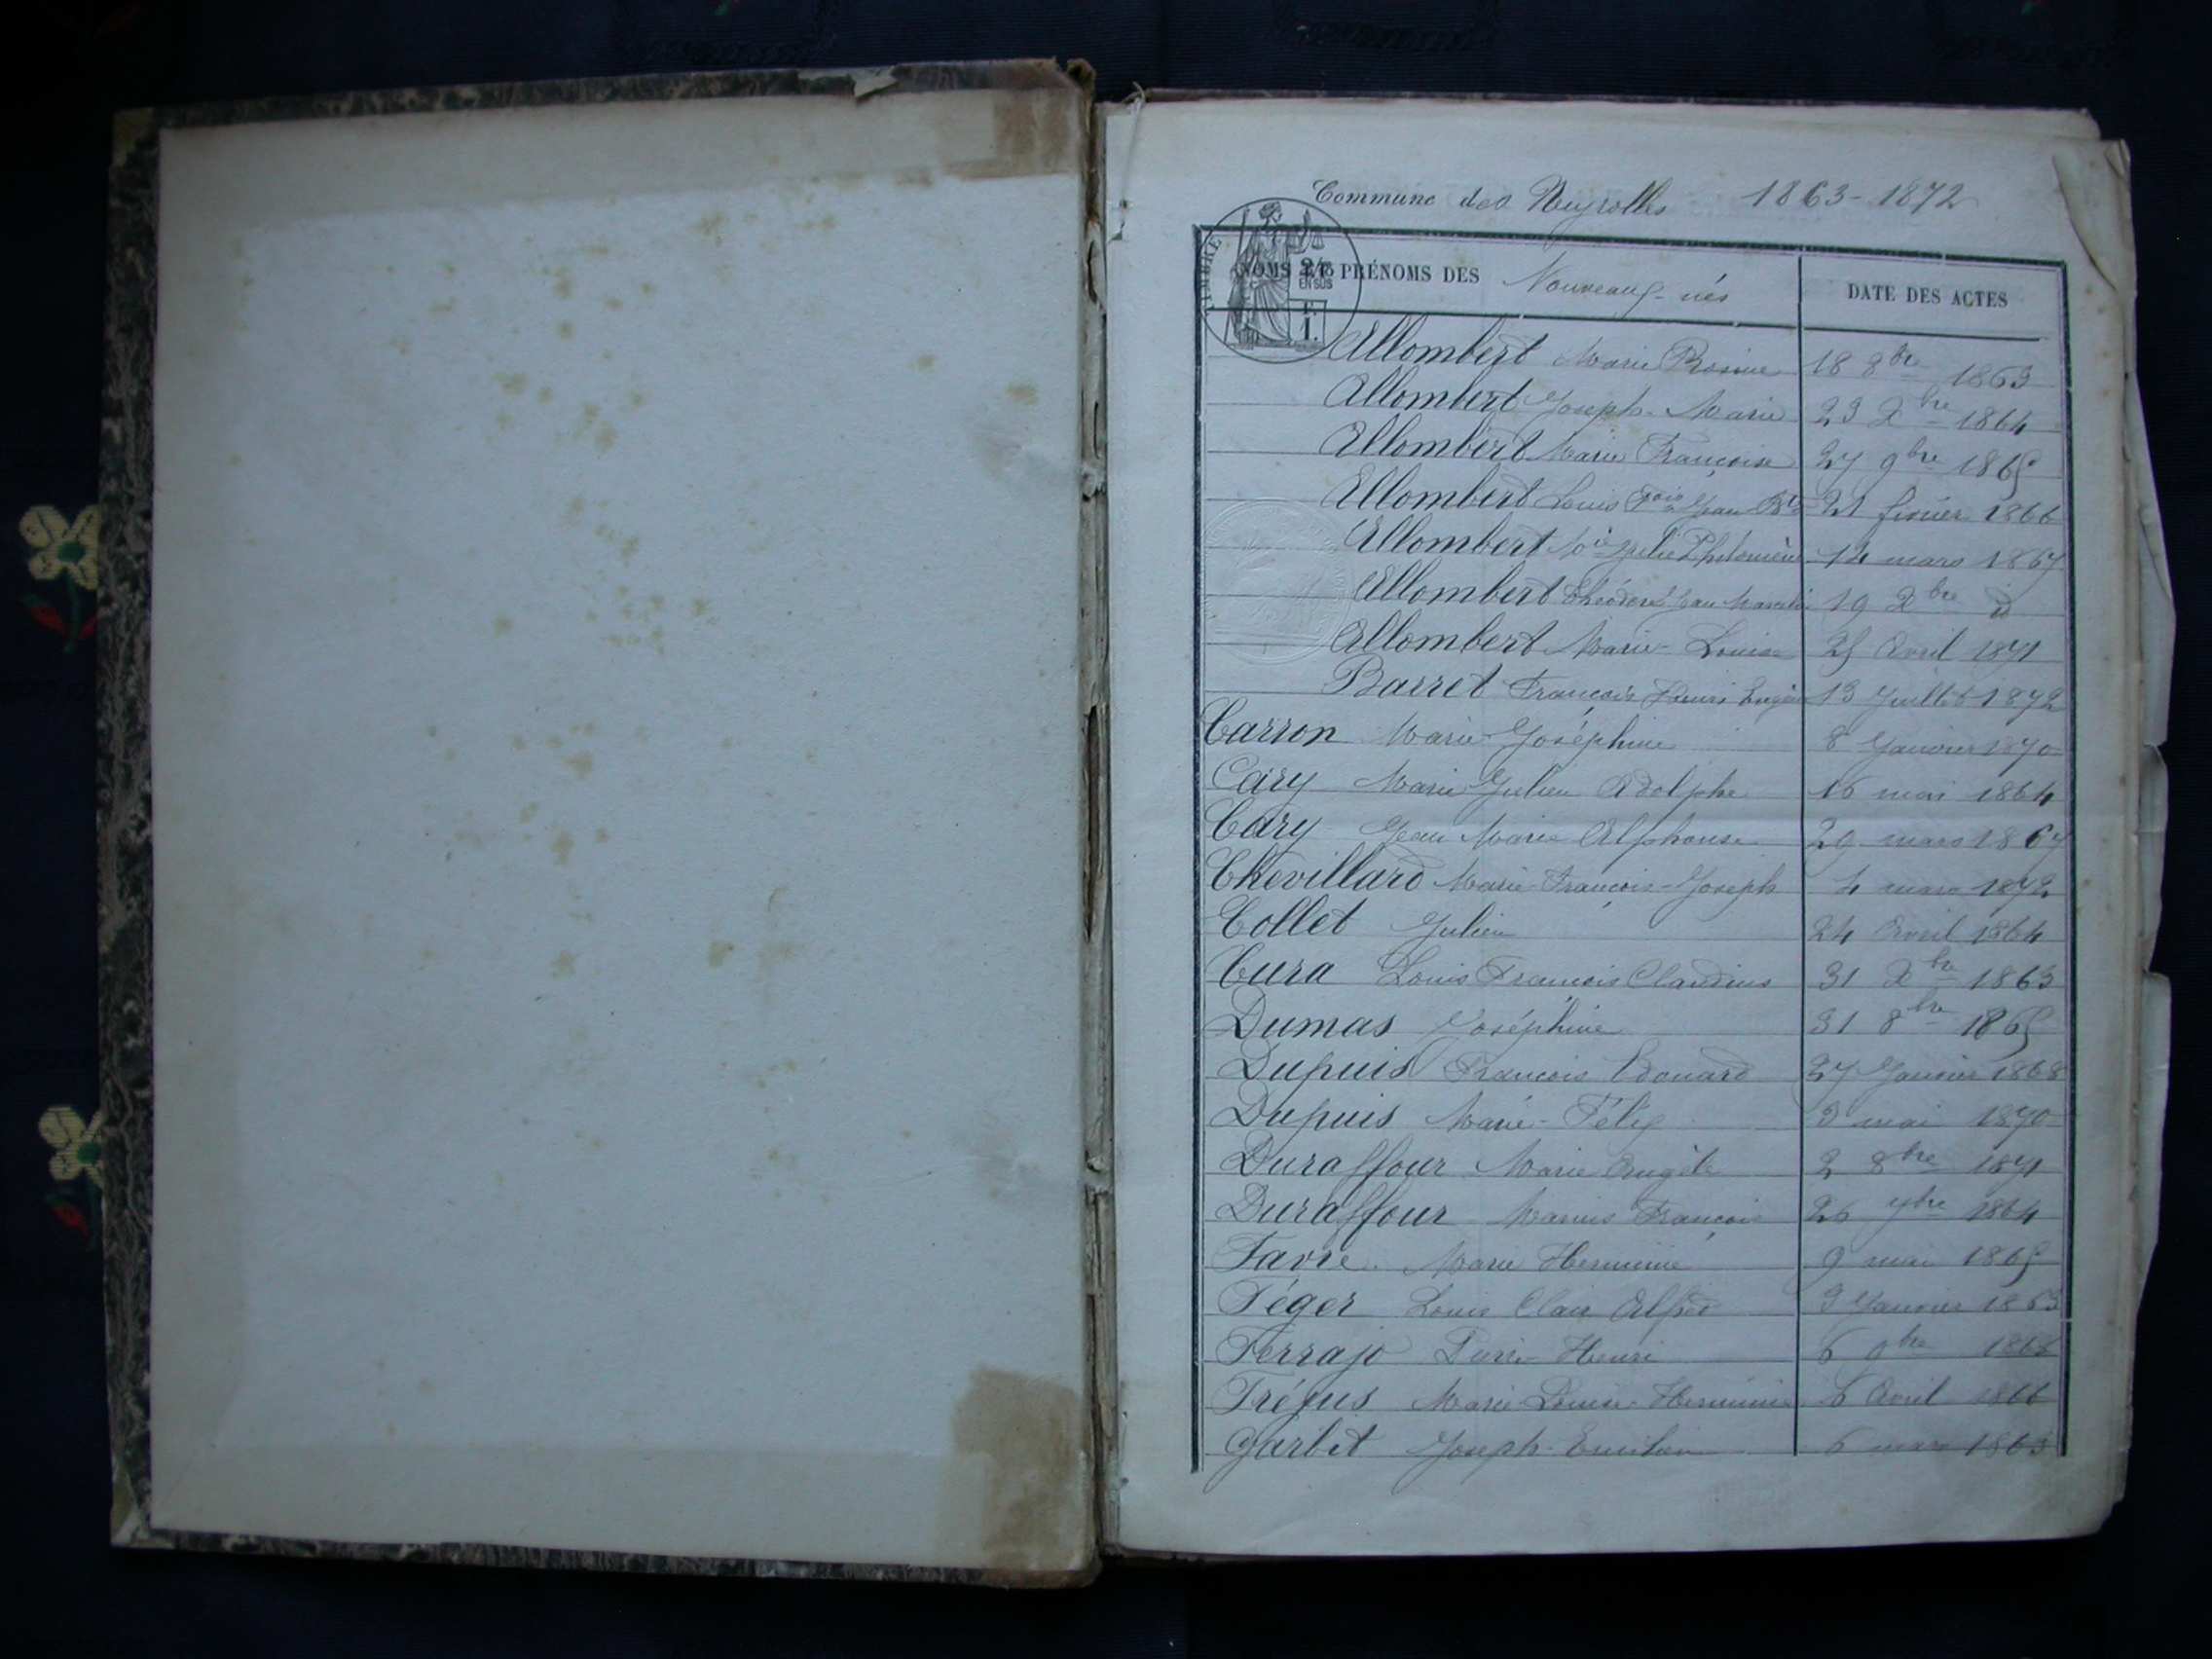 Commune des Neyrolles 1863-1872
TIMBRE
2/10
EN SUS
NOMS ET PRÉNOMS DES Nouveaux-nés DATE DES ACTES
Allombert Marie Rosine 18 8bre 1863
Allombert Joseph-Marie 23 Xbre 1864
Allombert Marie Françoise 27 9bre 1865
Allombert Louis Fçois Jean Bte 21 février 1866
Allombert Mie Julie Philomène 14 mars 1867
Allombert Théodore Jean Marcelin 19 Xbre id
Allombert Marie-Louise 25 Avril 1871
Barret François Henri Eugène 13 Juillet 1872
Carron Marie Joséphine 8 Janvier 1870
Cary Marie Julien Adolphe 16 mai 1864
Cary Jean Marie Alphonse 29 mars 1867
Chevillard Marie-François-Joseph 4 mars 1872
Collet Julien 24 Avril 1864
Cura Louis François Claudius 31 Xbre 1863
Dumas Joséphine 31 8bre 1865
Dupuis François Edouard 27 Janvier 1868
Dupuis Marie-Félix 3 mai 1870
Duraffour Marie Angèle 2 8bre 1871
Duraffour Marius François 26 7bre 1864
Favre Marie Herminie 9 mai 1865
Féger Louis Clair Alfred 3 Janvier 1863
Ferrajo Pierre-Henri 6 9bre 1868
Fréjus Marie Louise-Herminie Avril 1866
Garbit Joseph-Emilien 6 mars 1863